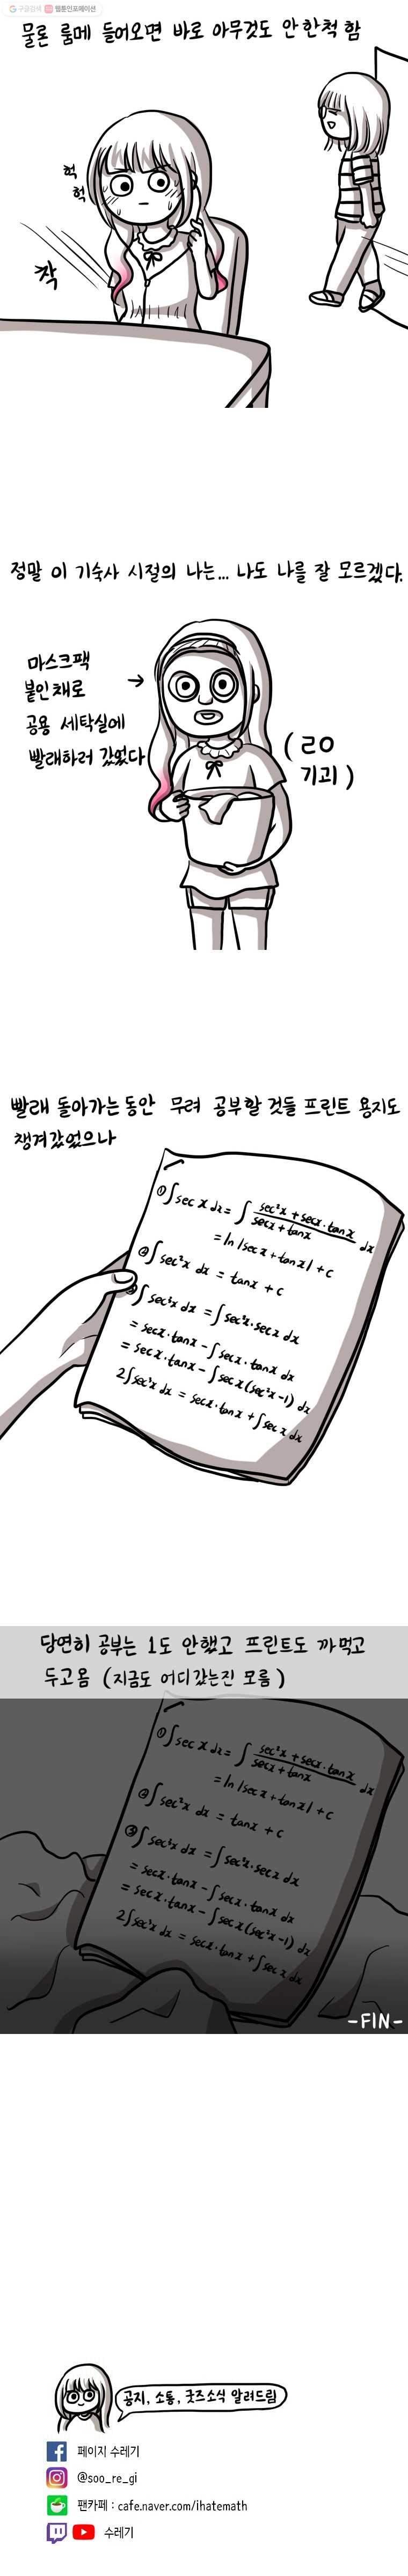 구글검색 웹툰인포메이션
물론 룸메 들어오면 바로 아무것도 안한척 함
헉
헉
촥
정말 이 기숙사 시절의 나는... 나도 나를 잘 모르겠다.
마스크팩
붙인채로
공용 세탁실에
빨래하러 갔었다
(ㄹㅇ
기괴)
빨래 돌아가는 동안 무려 공부할 것들 프린트 용지도
챙겨갔었으나
① ∫sec x dx = ∫ (sec²x + secx·tanx)/(secx + tanx) dx
= ln|secx + tanx| + c
② ∫sec²x dx = tanx + c
③ ∫sec³x dx = ∫sec²x·secx dx
= secx·tanx - ∫secx·tanx dx
= secx·tanx - ∫secx(sec²x-1) dx
2∫sec³x dx = secx·tanx + ∫secx dx
당연히 공부는 1도 안했고 프린트도 까먹고
두고옴 (지금도 어디갔는진 모름)
① ∫sec x dx = ∫ (sec²x + secx·tanx)/(secx + tanx) dx
= ln|secx + tanx| + c
② ∫sec²x dx = tanx + c
③ ∫sec³x dx = ∫sec²x·secx dx
= secx·tanx - ∫secx·tanx dx
= secx·tanx - ∫secx(sec²x-1) dx
2∫sec³x dx = secx·tanx + ∫secx dx
-FIN-
공지, 소통, 굿즈소식 알려드림
페이지 수레기
@soo_re_gi
팬카페 : cafe.naver.com/ihatemath
수레기